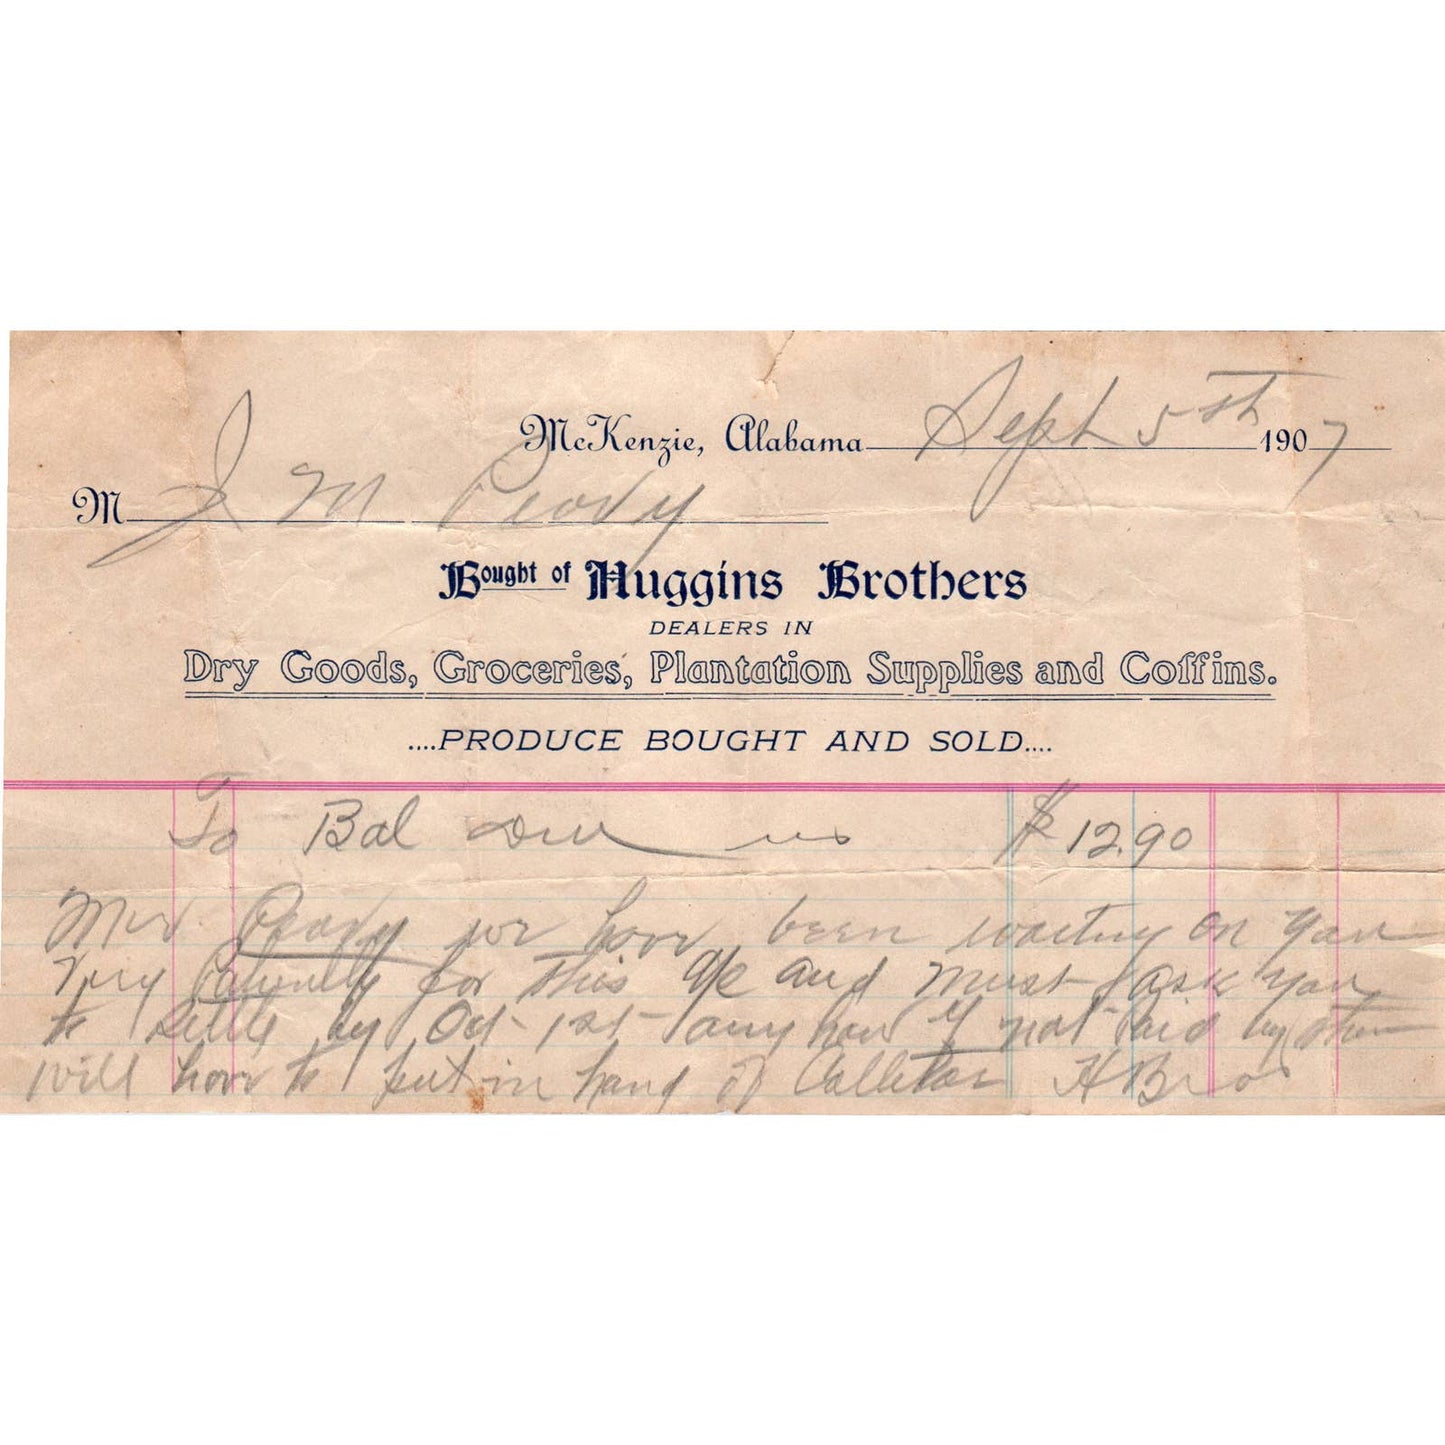 McKenzie, Alabama Sept 5th 1907
M J M Peavy
Bought of Huggins Brothers
DEALERS IN
Dry Goods, Groceries, Plantation Supplies and Coffins.
....PRODUCE BOUGHT AND SOLD....
To Bal Due us $12.90
Mr. Peavy we have been waiting on you
very patiently for this a/c and must ask you
to settle by Oct 1st any how if not paid by then
will have to put in hand of Collector H Bros